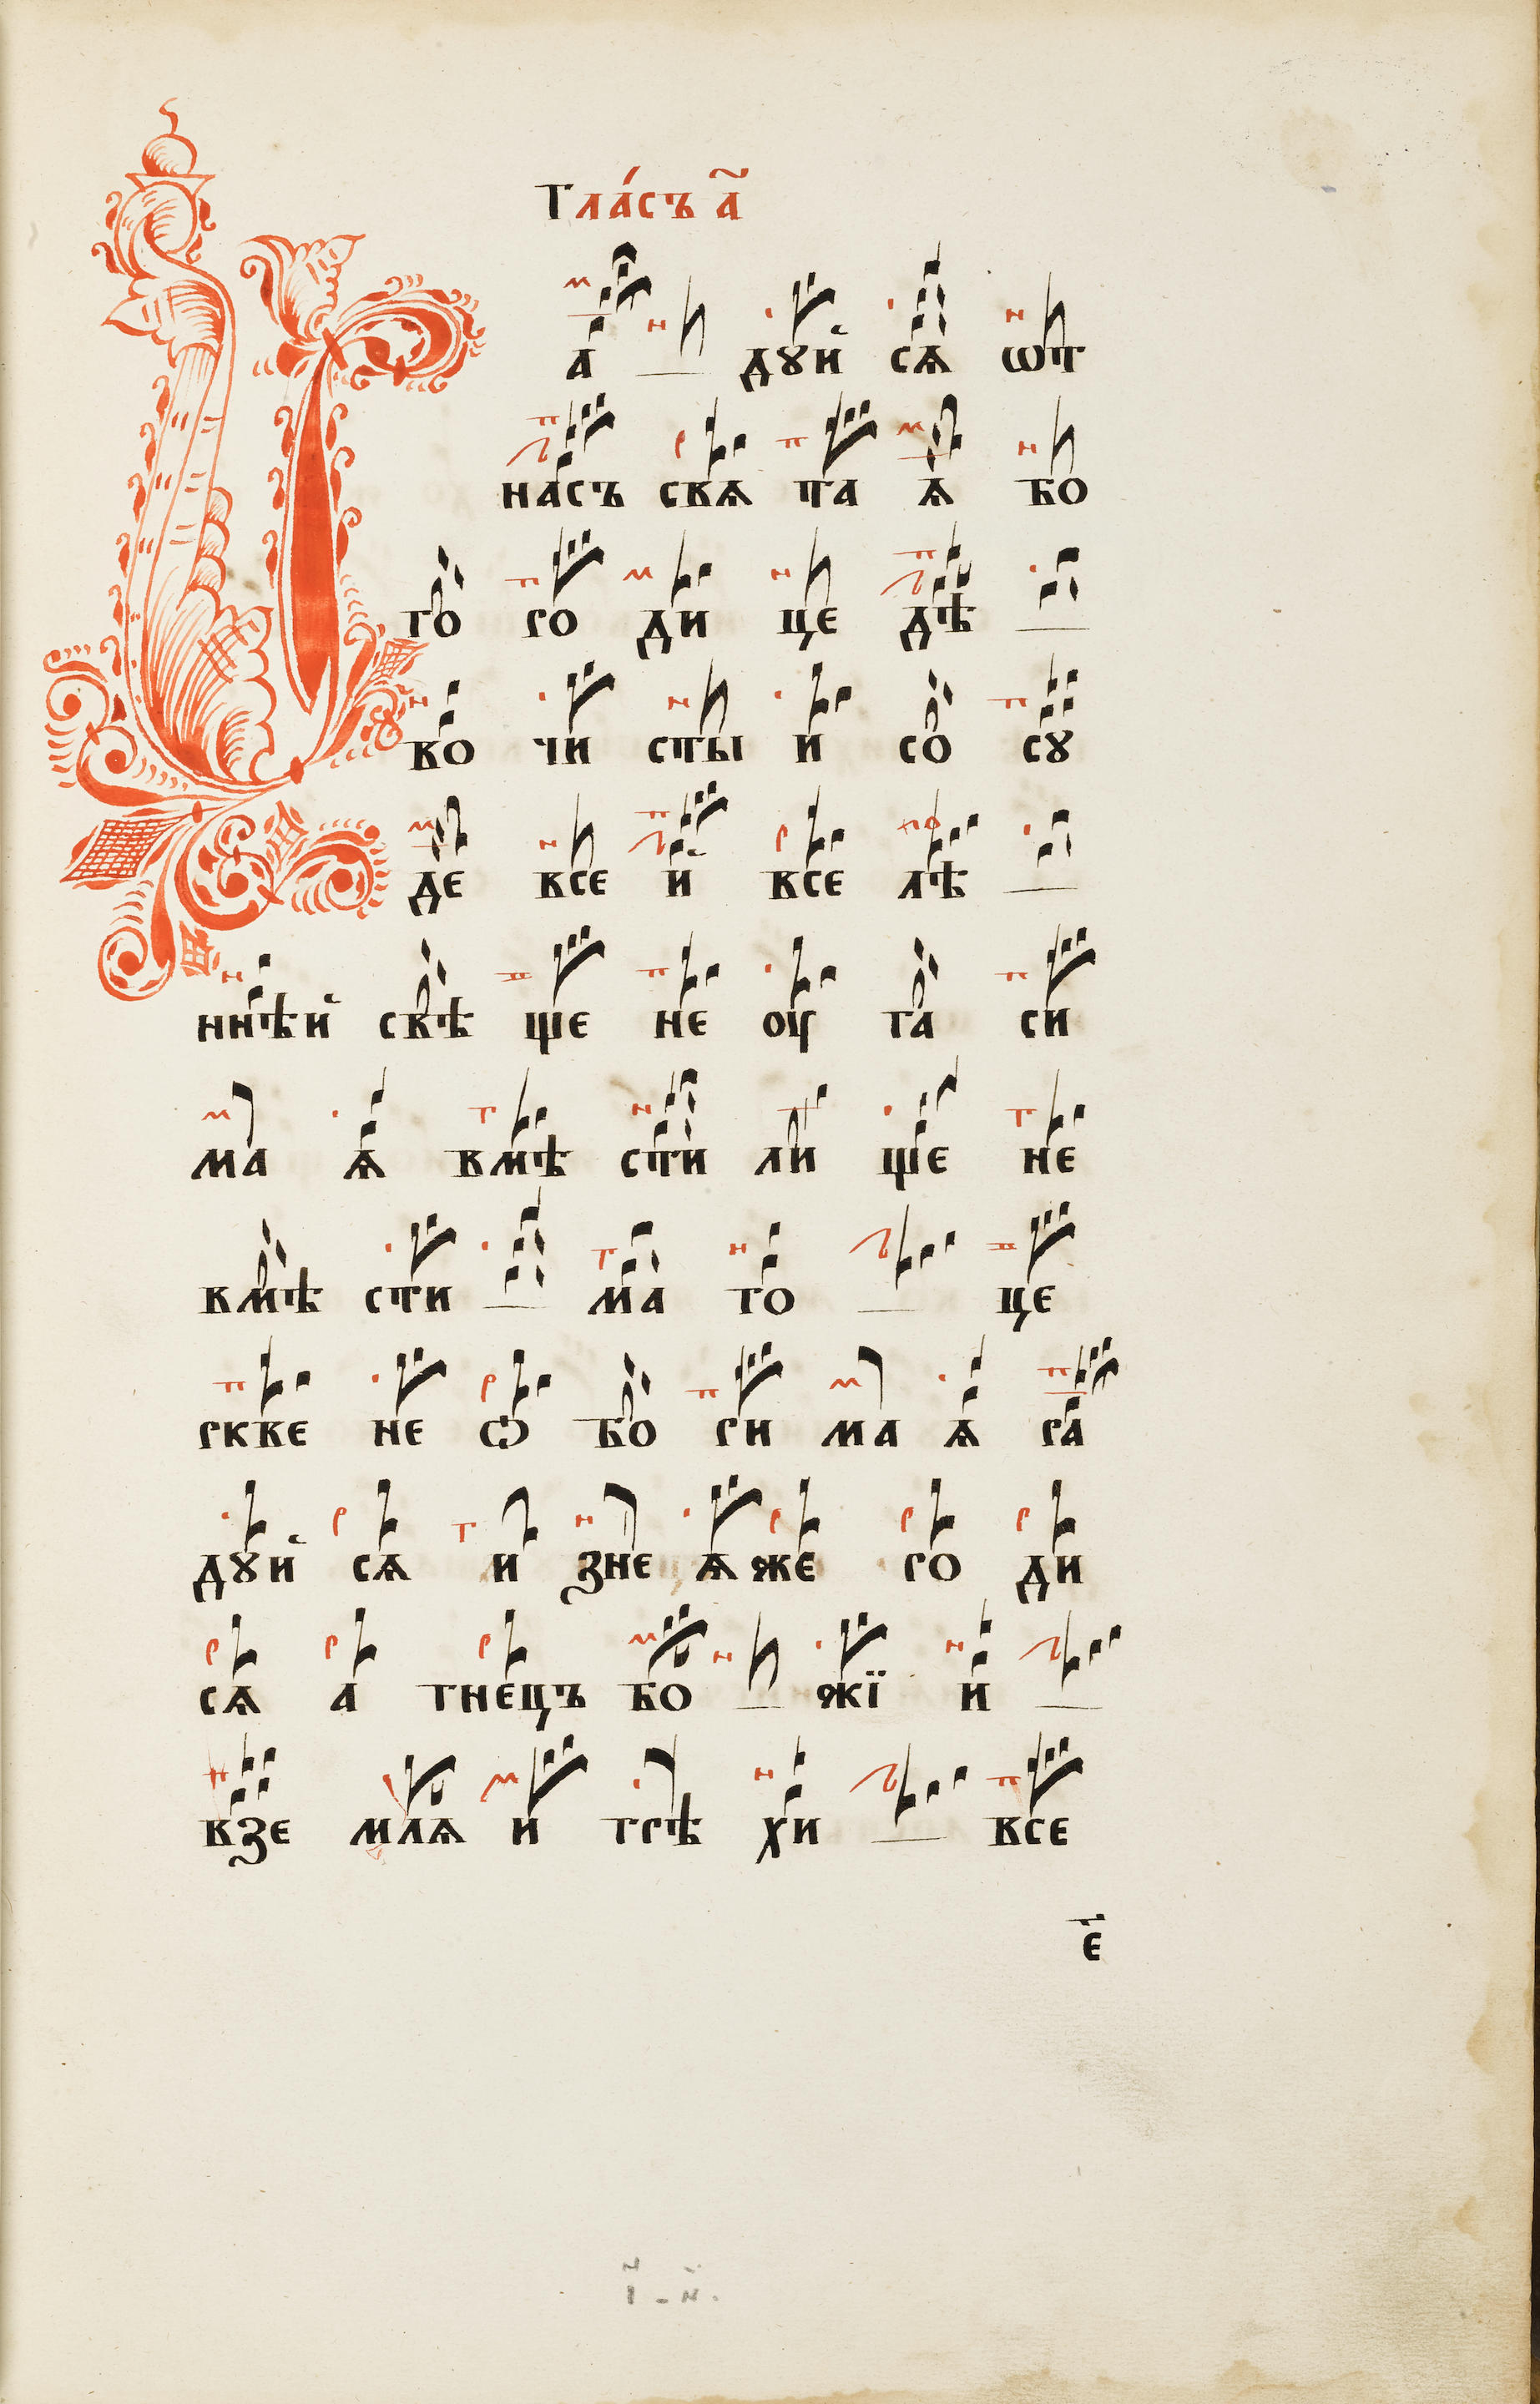 Гла́съ а҃
Р а дꙋй сѧ ѿ
насъ свѧ та ѧ бо
го ро ди це дѣ
во чи сты и со сꙋ
де все й все лѣ
ннѣй свѣ ще не ѹ га си
ма ѧ вмѣ сти ли ще не
вмѣ сти ма го це
ркве не ѡ бо ри ма ѧ ра
дꙋй сѧ и зне ѧ же ро ди
сѧ а гнецъ бо жї и
взе млѧ и грѣ хи все
е҃